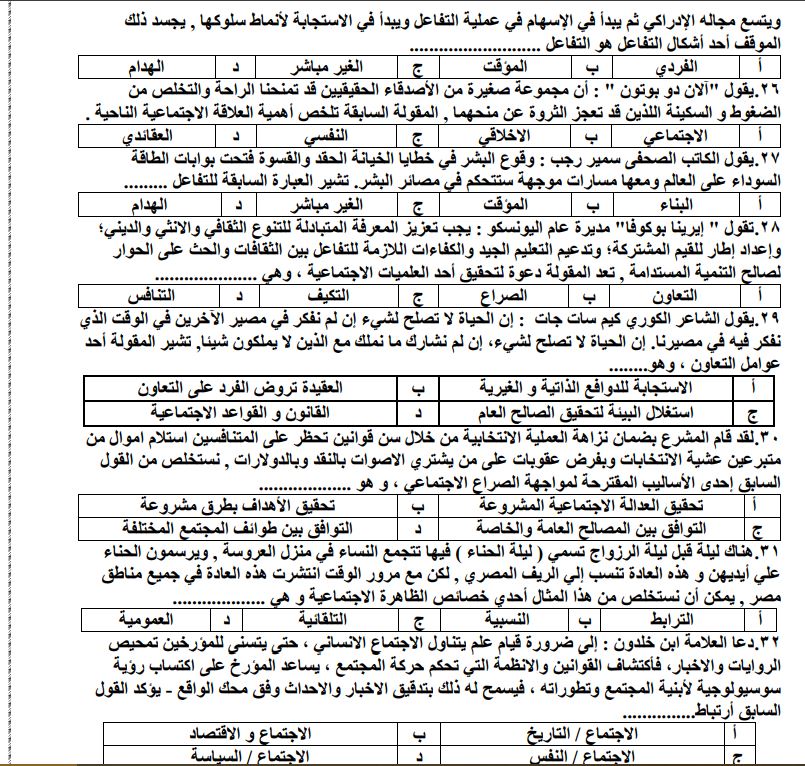 ويتسع مجاله الإدراكي ثم يبدأ في الإسهام في عملية التفاعل ويبدأ في الاستجابة لأنماط سلوكها , يجسد ذلك
الموقف أحد أشكال التفاعل هو التفاعل ...........................
أ الفردي ب المؤقت ج الغير مباشر د الهدام
٢٦.يقول "آلان دو بوتون " : أن مجموعة صغيرة من الأصدقاء الحقيقيين قد تمنحنا الراحة والتخلص من
الضغوط و السكينة اللذين قد تعجز الثروة عن منحهما , المقولة السابقة تلخص أهمية العلاقة الاجتماعية الناحية .
أ الاجتماعي ب الاخلاقي ج النفسي د العقائدي
٢٧.يقول الكاتب الصحفى سمير رجب : وقوع البشر في خطايا الخيانة الحقد والقسوة فتحت بوابات الطاقة
السوداء على العالم ومعها مسارات موجهة ستتحكم في مصائر البشر. تشير العبارة السابقة للتفاعل .........
أ البناء ب المؤقت ج الغير مباشر د الهدام
٢٨.تقول " إيرينا بوكوفا" مديرة عام اليونسكو : يجب تعزيز المعرفة المتبادلة للتنوع الثقافي والاثني والديني؛
وإعداد إطار للقيم المشتركة؛ وتدعيم التعليم الجيد والكفاءات اللازمة للتفاعل بين الثقافات والحث على الحوار
لصالح التنمية المستدامة , تعد المقولة دعوة لتحقيق أحد العلميات الاجتماعية ، وهي .....................
أ التعاون ب الصراع ج التكيف د التنافس
٢٩.يقول الشاعر الكوري كيم سات جات : إن الحياة لا تصلح لشيء إن لم نفكر في مصير الآخرين في الوقت الذي
نفكر فيه في مصيرنا. إن الحياة لا تصلح لشيء، إن لم نشارك ما نملك مع الذين لا يملكون شيئا, تشير المقولة أحد
عوامل التعاون ، وهو........
أ الاستجابة للدوافع الذاتية و الغيرية ب العقيدة تروض الفرد على التعاون
ج استغلال البيئة لتحقيق الصالح العام د القانون و القواعد الاجتماعية
٣٠.لقد قام المشرع بضمان نزاهة العملية الانتخابية من خلال سن قوانين تحظر على المتنافسين استلام اموال من
متبرعين عشية الانتخابات وبفرض عقوبات على من يشتري الاصوات بالنقد وبالدولارات , نستخلص من القول
السابق إحدى الأساليب المقترحة لمواجهة الصراع الاجتماعي ، و هو ...................
أ تحقيق العدالة الاجتماعية المشروعة ب تحقيق الأهداف بطرق مشروعة
ج التوافق بين المصالح العامة والخاصة د التوافق بين طوائف المجتمع المختلفة
٣١.هناك ليلة قبل ليلة الرزواج تسمي ( ليلة الحناء ) فيها تتجمع النساء في منزل العروسة , ويرسمون الحناء
علي أيديهن و هذه العادة تنسب إلي الريف المصري , لكن مع مرور الوقت انتشرت هذه العادة في جميع مناطق
مصر , يمكن أن نستخلص من هذا المثال أحدي خصائص الظاهرة الاجتماعية و هي ...................
أ الترابط ب النسبية ج التلقائية د العمومية
٣٢.دعا العلامة ابن خلدون : إلى ضرورة قيام علم يتناول الاجتماع الانساني ، حتى يتسنى للمؤرخين تمحيص
الروايات والاخبار، فأكتشاف القوانين والانظمة التي تحكم حركة المجتمع ، يساعد المؤرخ على اكتساب رؤية
سوسيولوجية لأبنية المجتمع وتطوراته ، فيسمح له ذلك بتدقيق الاخبار والاحداث وفق محك الواقع - يؤكد القول
السابق أرتباط...............
أ الاجتماع / التاريخ ب الاجتماع و الاقتصاد
ج الاجتماع / النفس د الاجتماع / السياسة